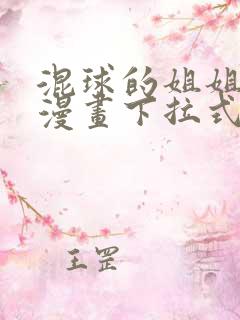 混球的姐姐
漫畫下拉式
王罡